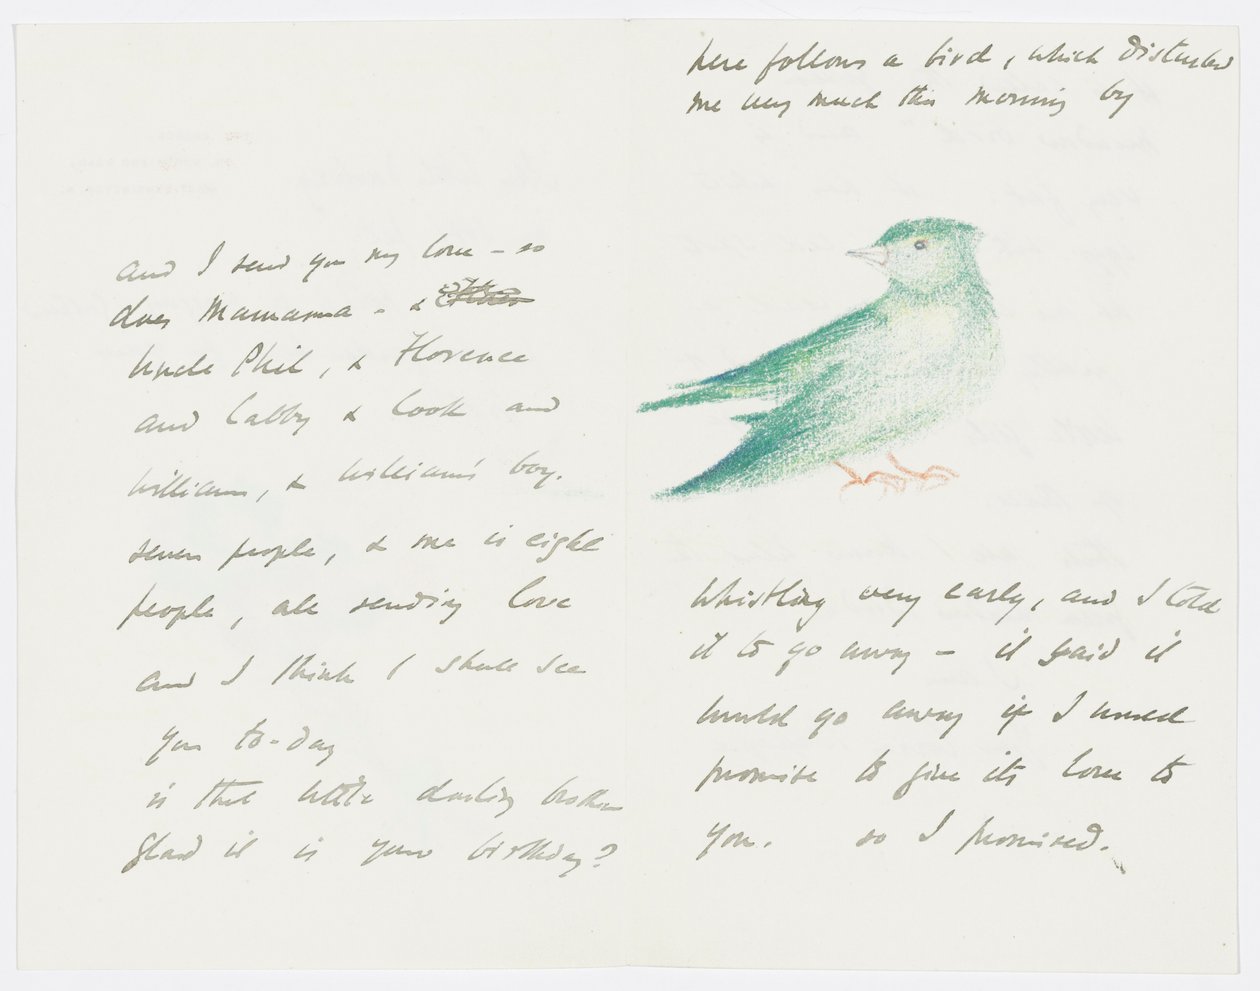 and I send you my love – so
does Mamama – &
Uncle Phil, & Florence
and Cabby & Cook and
William, & William's boy.
seven people, & me is eight
people, all sending love
and I think I shall see
you to-day
is that little darling brother
glad it is your birthday?
here follows a bird, which disturbed
me very much this morning by
whistling very early, and I told
it to go away – it said it
would go away if I would
promise to give its love to
you. so I promised.